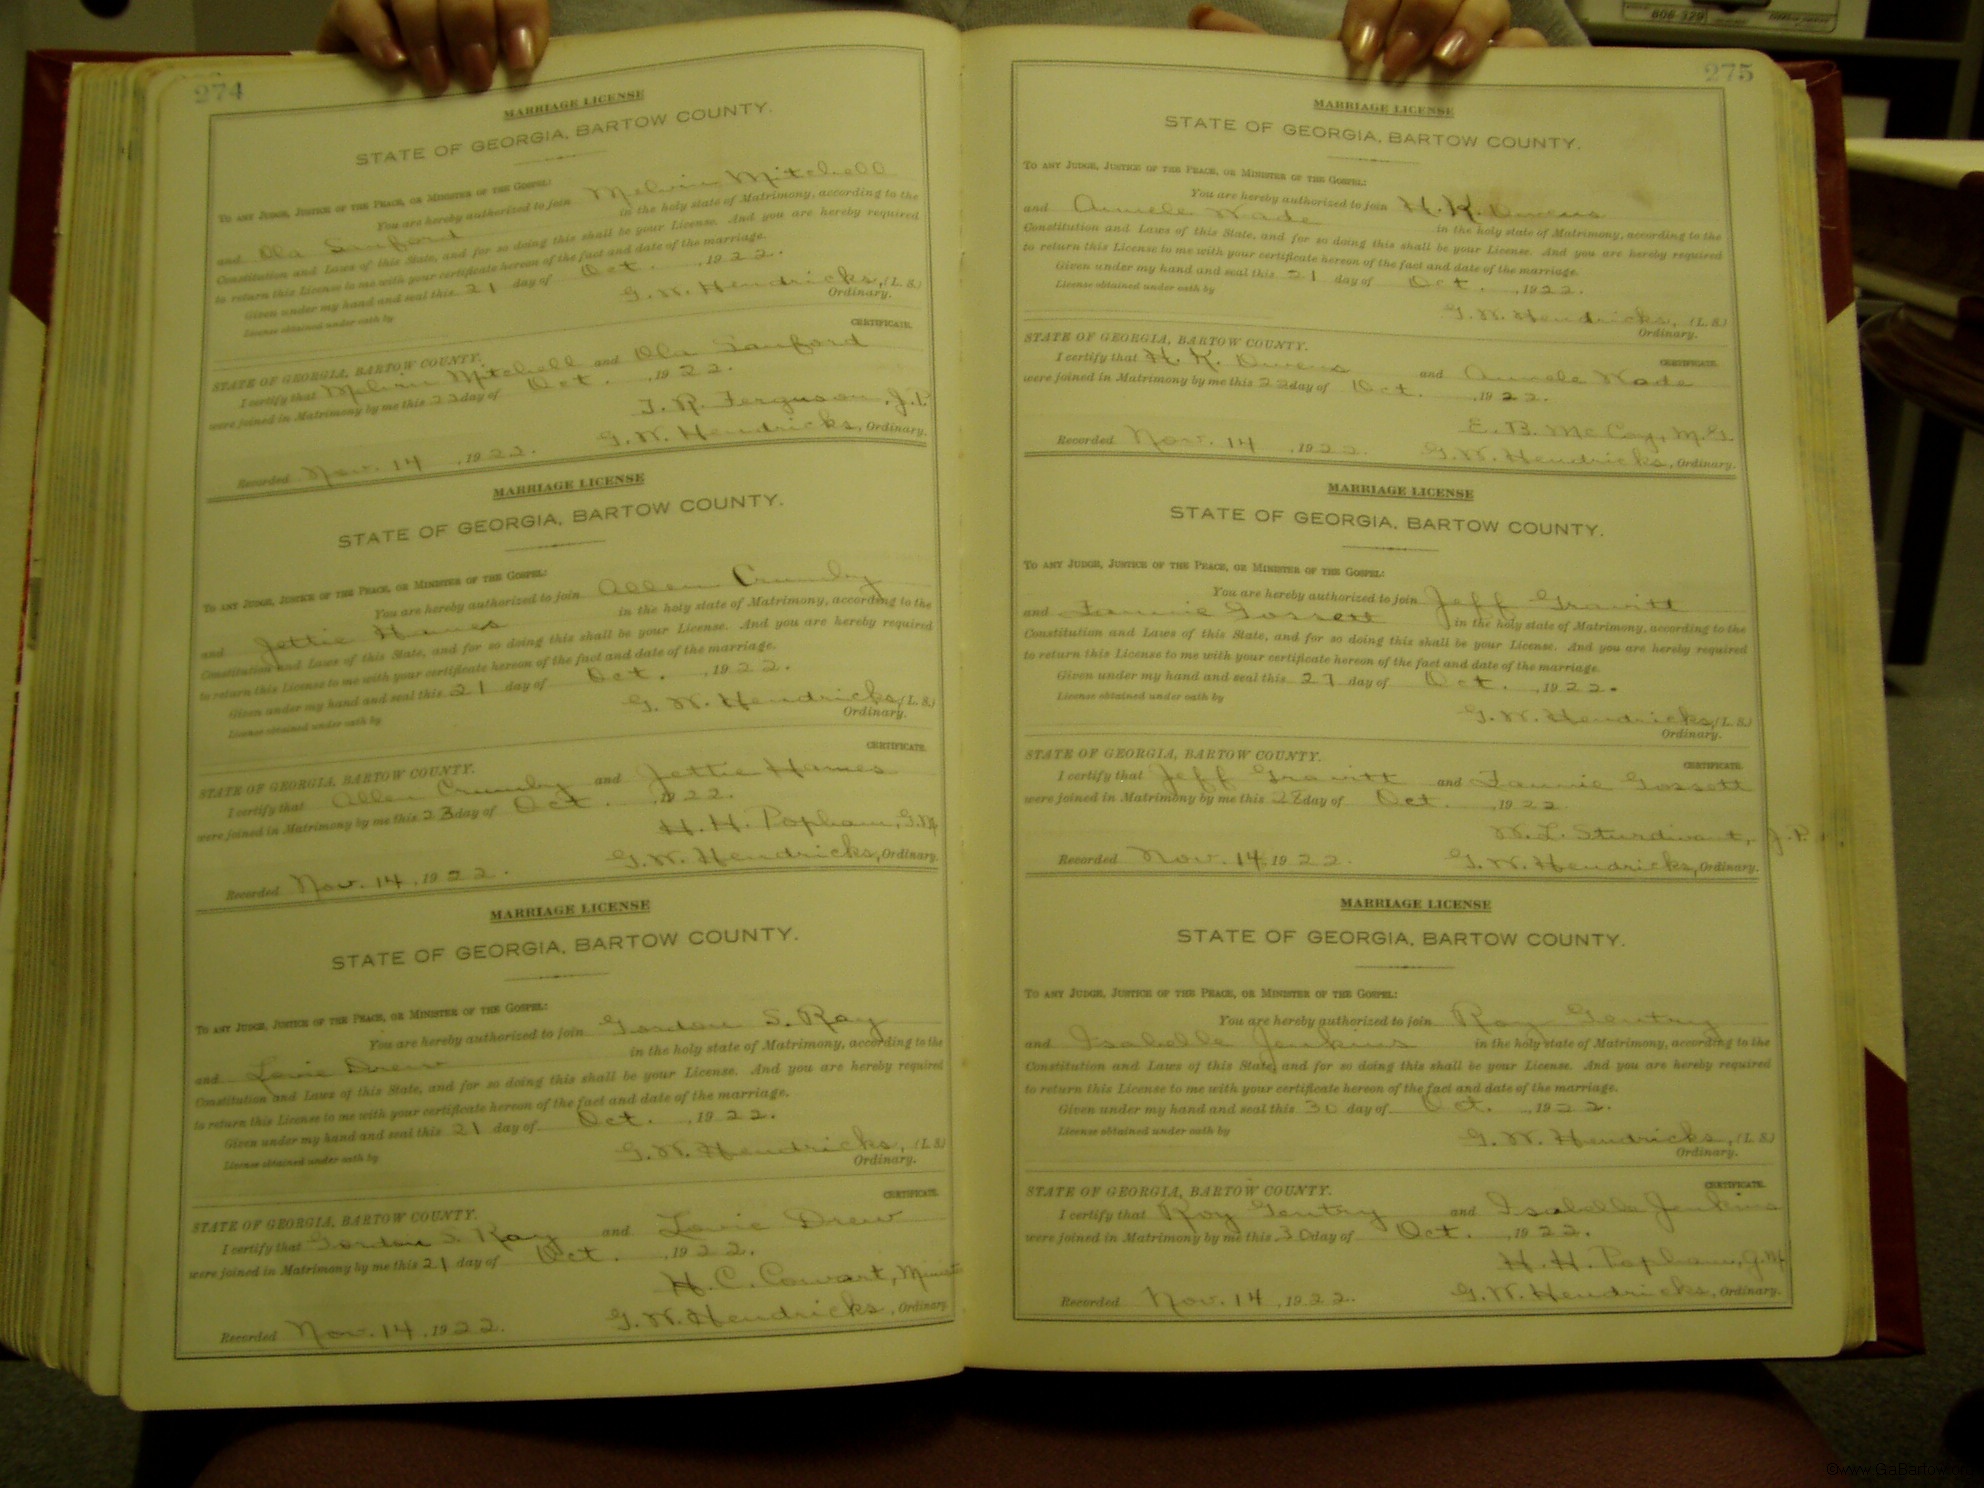 274
MARRIAGE LICENSE
STATE OF GEORGIA, BARTOW COUNTY.
TO ANY JUDGE, JUSTICE OF THE PEACE, OR MINISTER OF THE GOSPEL:
You are hereby authorized to join Melvin Mitchell
and Ola Sanford in the holy state of Matrimony, according to the
Constitution and Laws of this State, and for so doing this shall be your License. And you are hereby required
to return this License to me with your certificate hereon of the fact and date of the marriage.
Given under my hand and seal this 21 day of Oct. , 1922.
License obtained under oath by
G. W. Hendricks, (L. S.)
Ordinary.
CERTIFICATE.
STATE OF GEORGIA, BARTOW COUNTY.
I certify that Melvin Mitchell and Ola Sanford
were joined in Matrimony by me this day of Oct. , 1922.
T. R. Ferguson, J.P.
Recorded Nov. 14 , 1922. G. W. Hendricks, Ordinary.
MARRIAGE LICENSE
STATE OF GEORGIA, BARTOW COUNTY.
TO ANY JUDGE, JUSTICE OF THE PEACE, OR MINISTER OF THE GOSPEL:
You are hereby authorized to join Allen Crumby
and Jettie Hames in the holy state of Matrimony, according to the
Constitution and Laws of this State, and for so doing this shall be your License. And you are hereby required
to return this License to me with your certificate hereon of the fact and date of the marriage.
Given under my hand and seal this 21 day of Oct. , 1922.
License obtained under oath by
G. W. Hendricks, (L. S.)
Ordinary.
CERTIFICATE.
STATE OF GEORGIA, BARTOW COUNTY.
I certify that Allen Crumby and Jettie Hames
were joined in Matrimony by me this 23 day of Oct. , 1922.
H. H. Popham, G.M.
Recorded Nov. 14 , 1922. G. W. Hendricks, Ordinary.
MARRIAGE LICENSE
STATE OF GEORGIA, BARTOW COUNTY.
TO ANY JUDGE, JUSTICE OF THE PEACE, OR MINISTER OF THE GOSPEL:
You are hereby authorized to join Gordon S. Ray
and Lovie Drew in the holy state of Matrimony, according to the
Constitution and Laws of this State, and for so doing this shall be your License. And you are hereby required
to return this License to me with your certificate hereon of the fact and date of the marriage.
Given under my hand and seal this 21 day of Oct. , 1922.
License obtained under oath by
G. W. Hendricks, (L. S.)
Ordinary.
CERTIFICATE.
STATE OF GEORGIA, BARTOW COUNTY.
I certify that Gordon S. Ray and Lovie Drew
were joined in Matrimony by me this 21 day of Oct. , 1922.
H. C. Cowart,
Recorded Nov. 14 , 1922. G. W. Hendricks, Ordinary.
275
MARRIAGE LICENSE
STATE OF GEORGIA, BARTOW COUNTY.
TO ANY JUDGE, JUSTICE OF THE PEACE, OR MINISTER OF THE GOSPEL:
You are hereby authorized to join H. K. Owens
and Wade in the holy state of Matrimony, according to the
Constitution and Laws of this State, and for so doing this shall be your License. And you are hereby required
to return this License to me with your certificate hereon of the fact and date of the marriage.
Given under my hand and seal this 21 day of Oct. , 1922.
License obtained under oath by
G. W. Hendricks, (L. S.)
Ordinary.
CERTIFICATE.
STATE OF GEORGIA, BARTOW COUNTY.
I certify that H. K. Owens and Wade
were joined in Matrimony by me this 22 day of Oct. , 1922.
E. B. McCoy,
Recorded Nov. 14 , 1922. G. W. Hendricks, Ordinary.
MARRIAGE LICENSE
STATE OF GEORGIA, BARTOW COUNTY.
TO ANY JUDGE, JUSTICE OF THE PEACE, OR MINISTER OF THE GOSPEL:
You are hereby authorized to join Jeff Gravitt
and Fannie Gossett in the holy state of Matrimony, according to the
Constitution and Laws of this State, and for so doing this shall be your License. And you are hereby required
to return this License to me with your certificate hereon of the fact and date of the marriage.
Given under my hand and seal this 27 day of Oct. , 1922.
License obtained under oath by
G. W. Hendricks, (L. S.)
Ordinary.
CERTIFICATE.
STATE OF GEORGIA, BARTOW COUNTY.
I certify that Jeff Gravitt and Fannie Gossett
were joined in Matrimony by me this day of Oct. , 1922
W. L. Sturdivant, J. P.
Recorded Nov. 14, 1922. G. W. Hendricks, Ordinary.
MARRIAGE LICENSE
STATE OF GEORGIA, BARTOW COUNTY.
TO ANY JUDGE, JUSTICE OF THE PEACE, OR MINISTER OF THE GOSPEL:
You are hereby authorized to join Roy Gentry
and Isabelle Jenkins in the holy state of Matrimony, according to the
Constitution and Laws of this State, and for so doing this shall be your License. And you are hereby required
to return this License to me with your certificate hereon of the fact and date of the marriage.
Given under my hand and seal this 30 day of Oct. , 1922.
License obtained under oath by
G. W. Hendricks, (L. S.)
Ordinary.
CERTIFICATE.
STATE OF GEORGIA, BARTOW COUNTY.
I certify that Roy Gentry and Isabelle Jenkins
were joined in Matrimony by me this 30 day of Oct. , 1922.
H. H. Popham, G.M.
Recorded Nov. 14 , 1922. G. W. Hendricks, Ordinary.